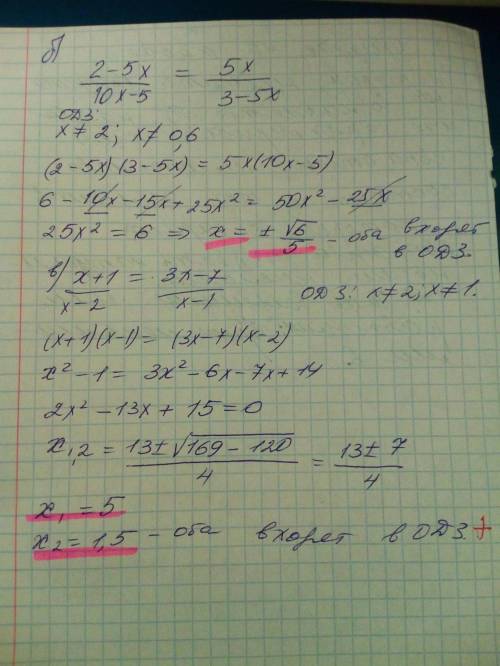 б)
2-5x / 10x-5 = 5x / 3-5x
ОДЗ:
x≠2; x≠0,6
(2-5x)(3-5x) = 5x(10x-5)
6 - 10x - 15x + 25x² = 50x² - 25x
25x² = 6 ⇒ x = ± √6 / 5 - оба входят
в ОДЗ.
в) x+1 / x-2 = 3x-7 / x-1 ОДЗ: x≠2; x≠1.
(x+1)(x-1) = (3x-7)(x-2)
x² - 1 = 3x² - 6x - 7x + 14
2x² - 13x + 15 = 0
x₁,₂ = 13 ± √169 - 120 / 4 = 13 ± 7 / 4
x₁ = 5
x₂ = 1,5 - оба входят в ОДЗ. +